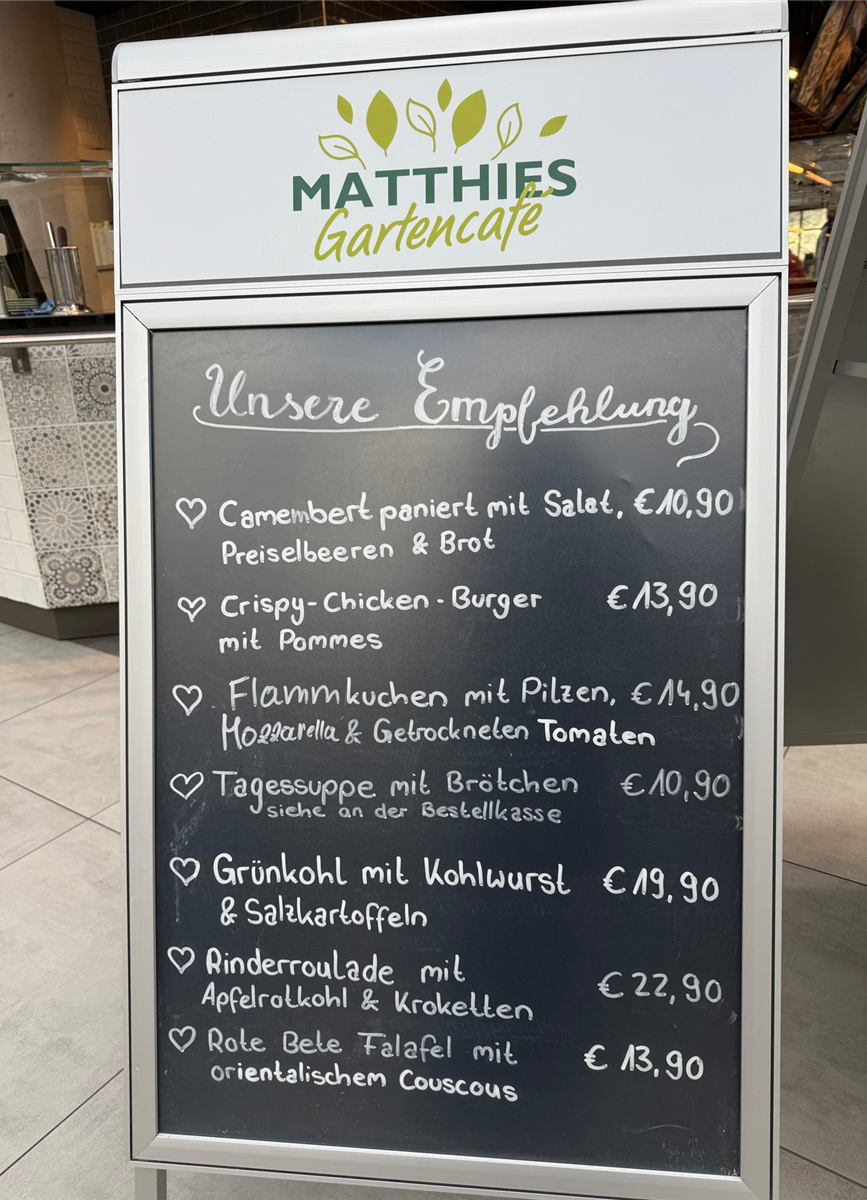 MATTHIES
Gartencafé
Unsere Empfehlung
♡ Camembert paniert mit Salat, €10,90
Preiselbeeren & Brot
♡ Crispy-Chicken-Burger €13,90
mit Pommes
♡ Flammkuchen mit Pilzen, €14,90
Mozzarella & Getrockneten Tomaten
♡ Tagessuppe mit Brötchen €10,90
siehe an der Bestellkasse
♡ Grünkohl mit Kohlwurst €19,90
& Salzkartoffeln
♡ Rinderroulade mit
Apfelrotkohl & Kroketten €22,90
♡ Rote Bete Falafel mit € 13,90
orientalischem Couscous